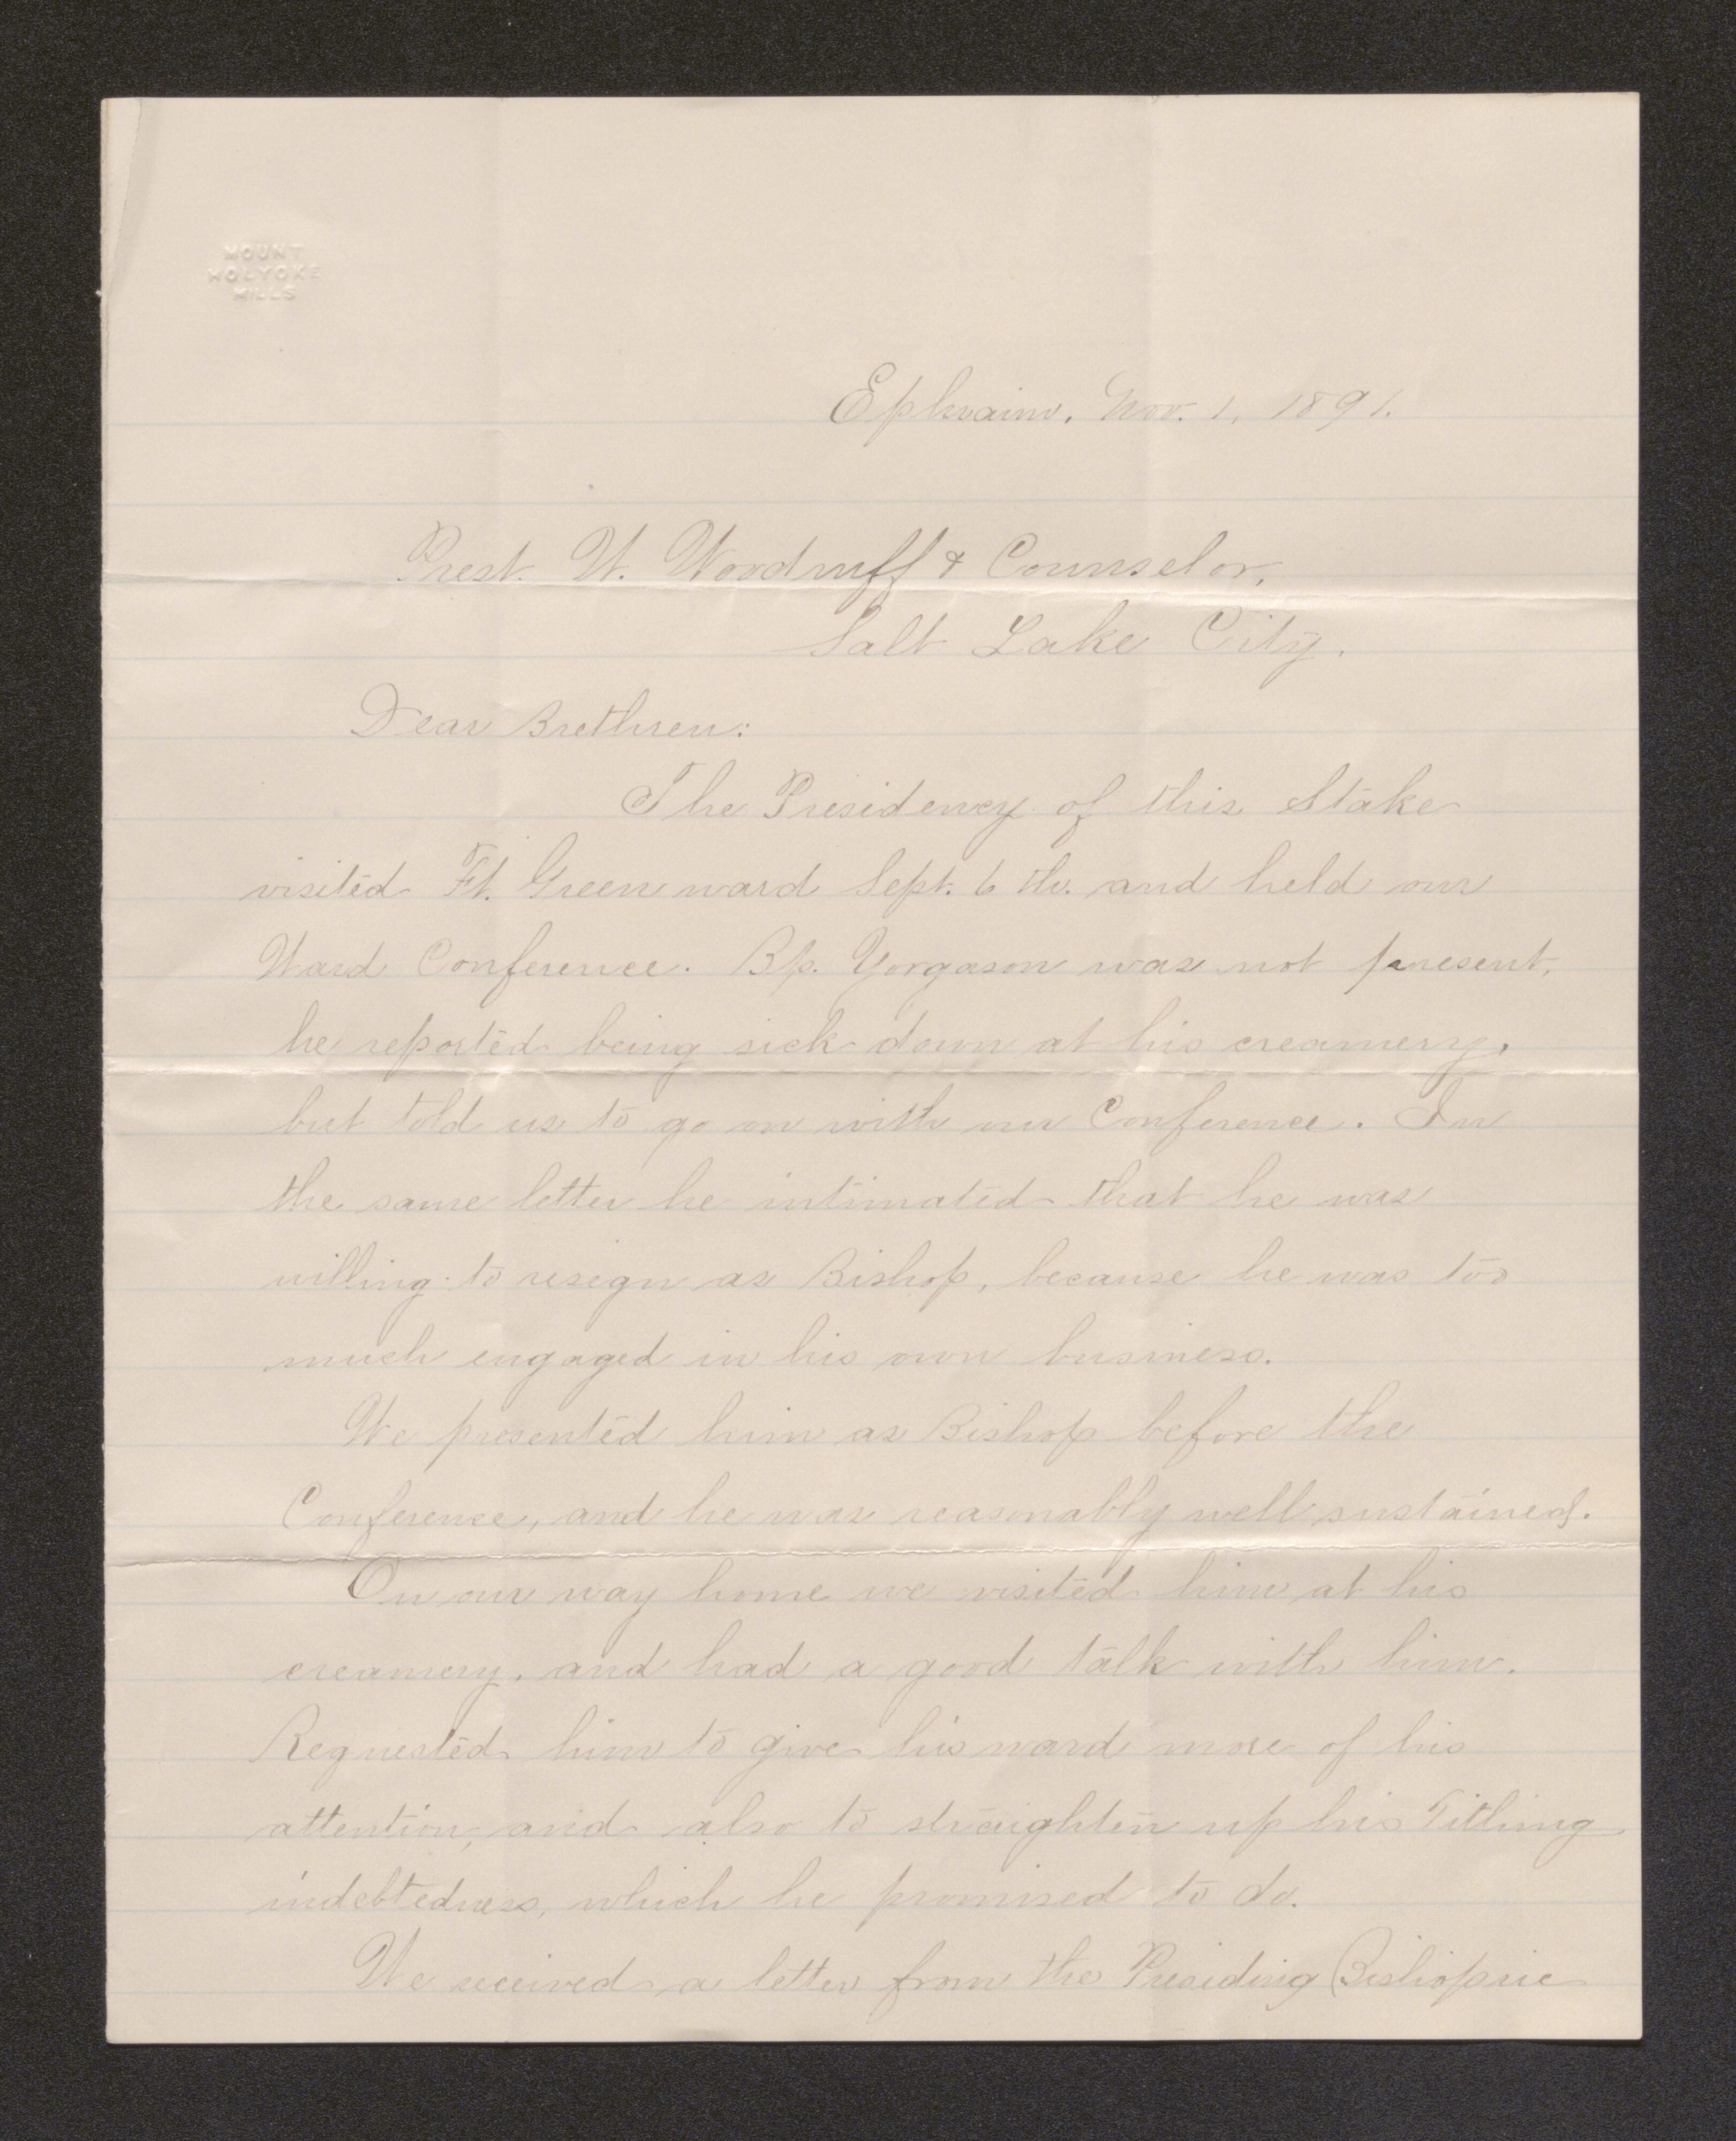 MOUNT
HOLYOKE
MILLS
Ephraim, Nov. 1, 1891.
Prest. W. Woodruff & Counselor,
Salt Lake City.
Dear Brethren:
The Presidency of this Stake
visited Ft. Green ward Sept. 6 th. and held our
Ward Conference. Bp. Yorgason was not present,
he reported being sick down at his creamery,
but told us to go on with our Conference. In
the same letter he intimated that he was
willing to resign as Bishop, because he was too
much engaged in his own business.
We presented him as Bishop before the
Conference, and he was reasonably well sustained.
On our way home we visited him at his
creamery, and had a good talk with him.
Requested him to give his ward more of his
attention, and also to straighten up his Tithing
indebtedness, which he promised to do.
We received a letter from the Presiding Bishopric